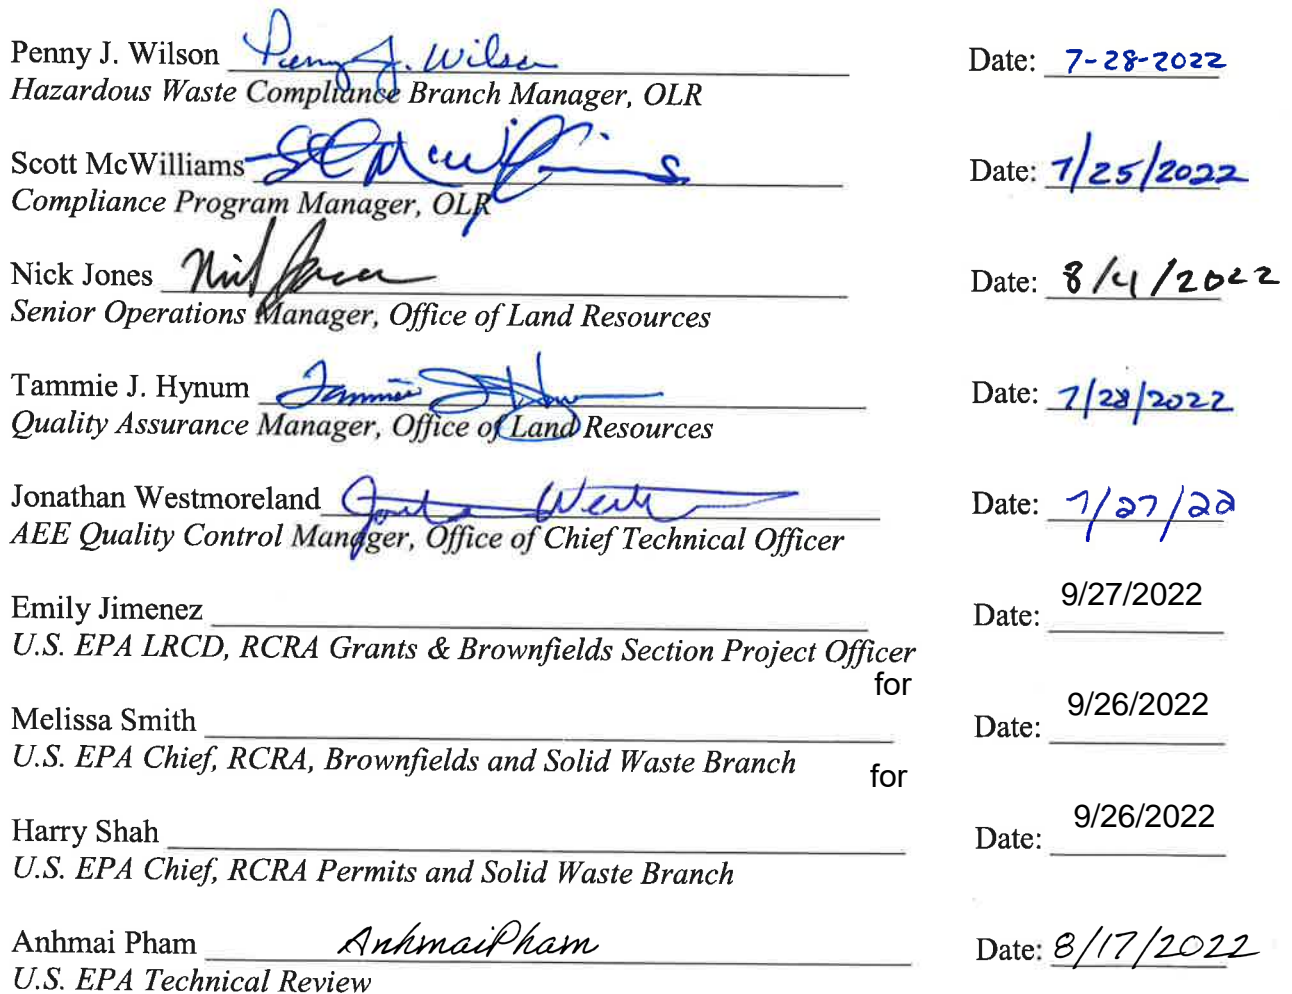 Penny J. Wilson Penny J. Wilson Date: 7-28-2022
Hazardous Waste Compliance Branch Manager, OLR
Scott McWilliams S C McWilliams Date: 7/25/2022
Compliance Program Manager, OLR
Nick Jones Nick Jones Date: 8/4/2022
Senior Operations Manager, Office of Land Resources
Tammie J. Hynum Tammie J. Hynum Date: 7/28/2022
Quality Assurance Manager, Office of Land Resources
Jonathan Westmoreland Date: 7/27/22
AEE Quality Control Manager, Office of Chief Technical Officer
Emily Jimenez Date: 9/27/2022
U.S. EPA LRCD, RCRA Grants & Brownfields Section Project Officer
for
Melissa Smith Date: 9/26/2022
U.S. EPA Chief, RCRA, Brownfields and Solid Waste Branch
for
Harry Shah Date: 9/26/2022
U.S. EPA Chief, RCRA Permits and Solid Waste Branch
Anhmai Pham Anhmai Pham Date: 8/17/2022
U.S. EPA Technical Review